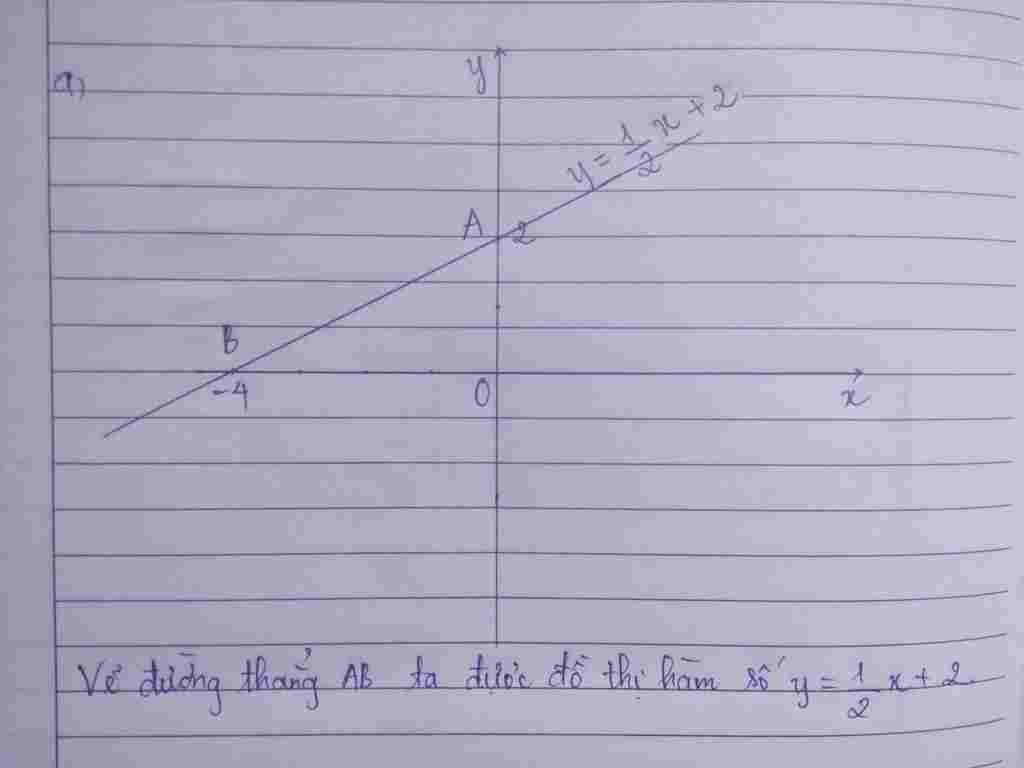 a)
y
y = 1/2 x + 2
A 2
B
-4 0 x
Vẽ đường thẳng AB ta được đồ thị hàm số y = 1/2 x + 2